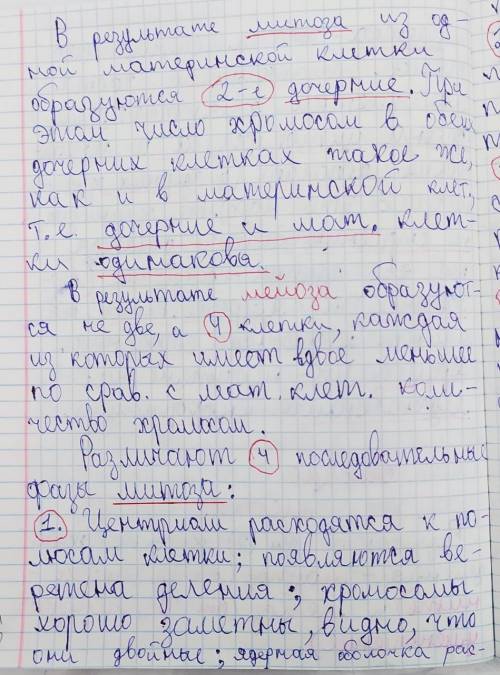 В результате митоза из од-
ной материнской клетки
образуются 2-е дочерние. При
этом число хромосом в обеи
дочерних клетках такое же,
как и в материнской клет.,
т.е. дочерние и мат. клет-
ки одинаковы.
В результате мейоза образуют-
ся не две, а 4 клетки, каждая
из которых имеет вдвое меньшее
по срав. с мат. клет. коли-
чество хромосом.
Различают 4 последовательные
фазы митоза:
1. Центриоли расходятся к по-
люсам клетки; появляются ве-
ретена деления; хромосомы
хорошо заметны, видно, что
они двойные; ядерная оболочка рас-